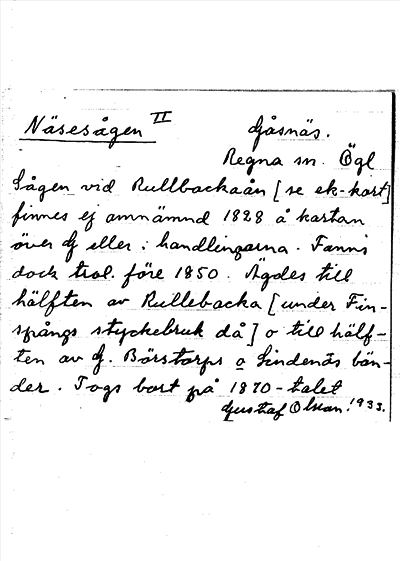 Näsesågen II Gåsnäs.
Regna sn. Ögl
Sågen vid Rullbackaån [se ek-kort]
finnes ej omnämnd 1828 å kartan
över G eller i handlingarna. Fanns
dock trol. före 1850. Ägdes till
hälften av Rullebacka [under Fin-
spångs styckebruk då] o till hälf-
ten av G. Börstorps o Lindenäs bön-
der. Togs bort på 1870-talet
Gustaf Olson. 1933.